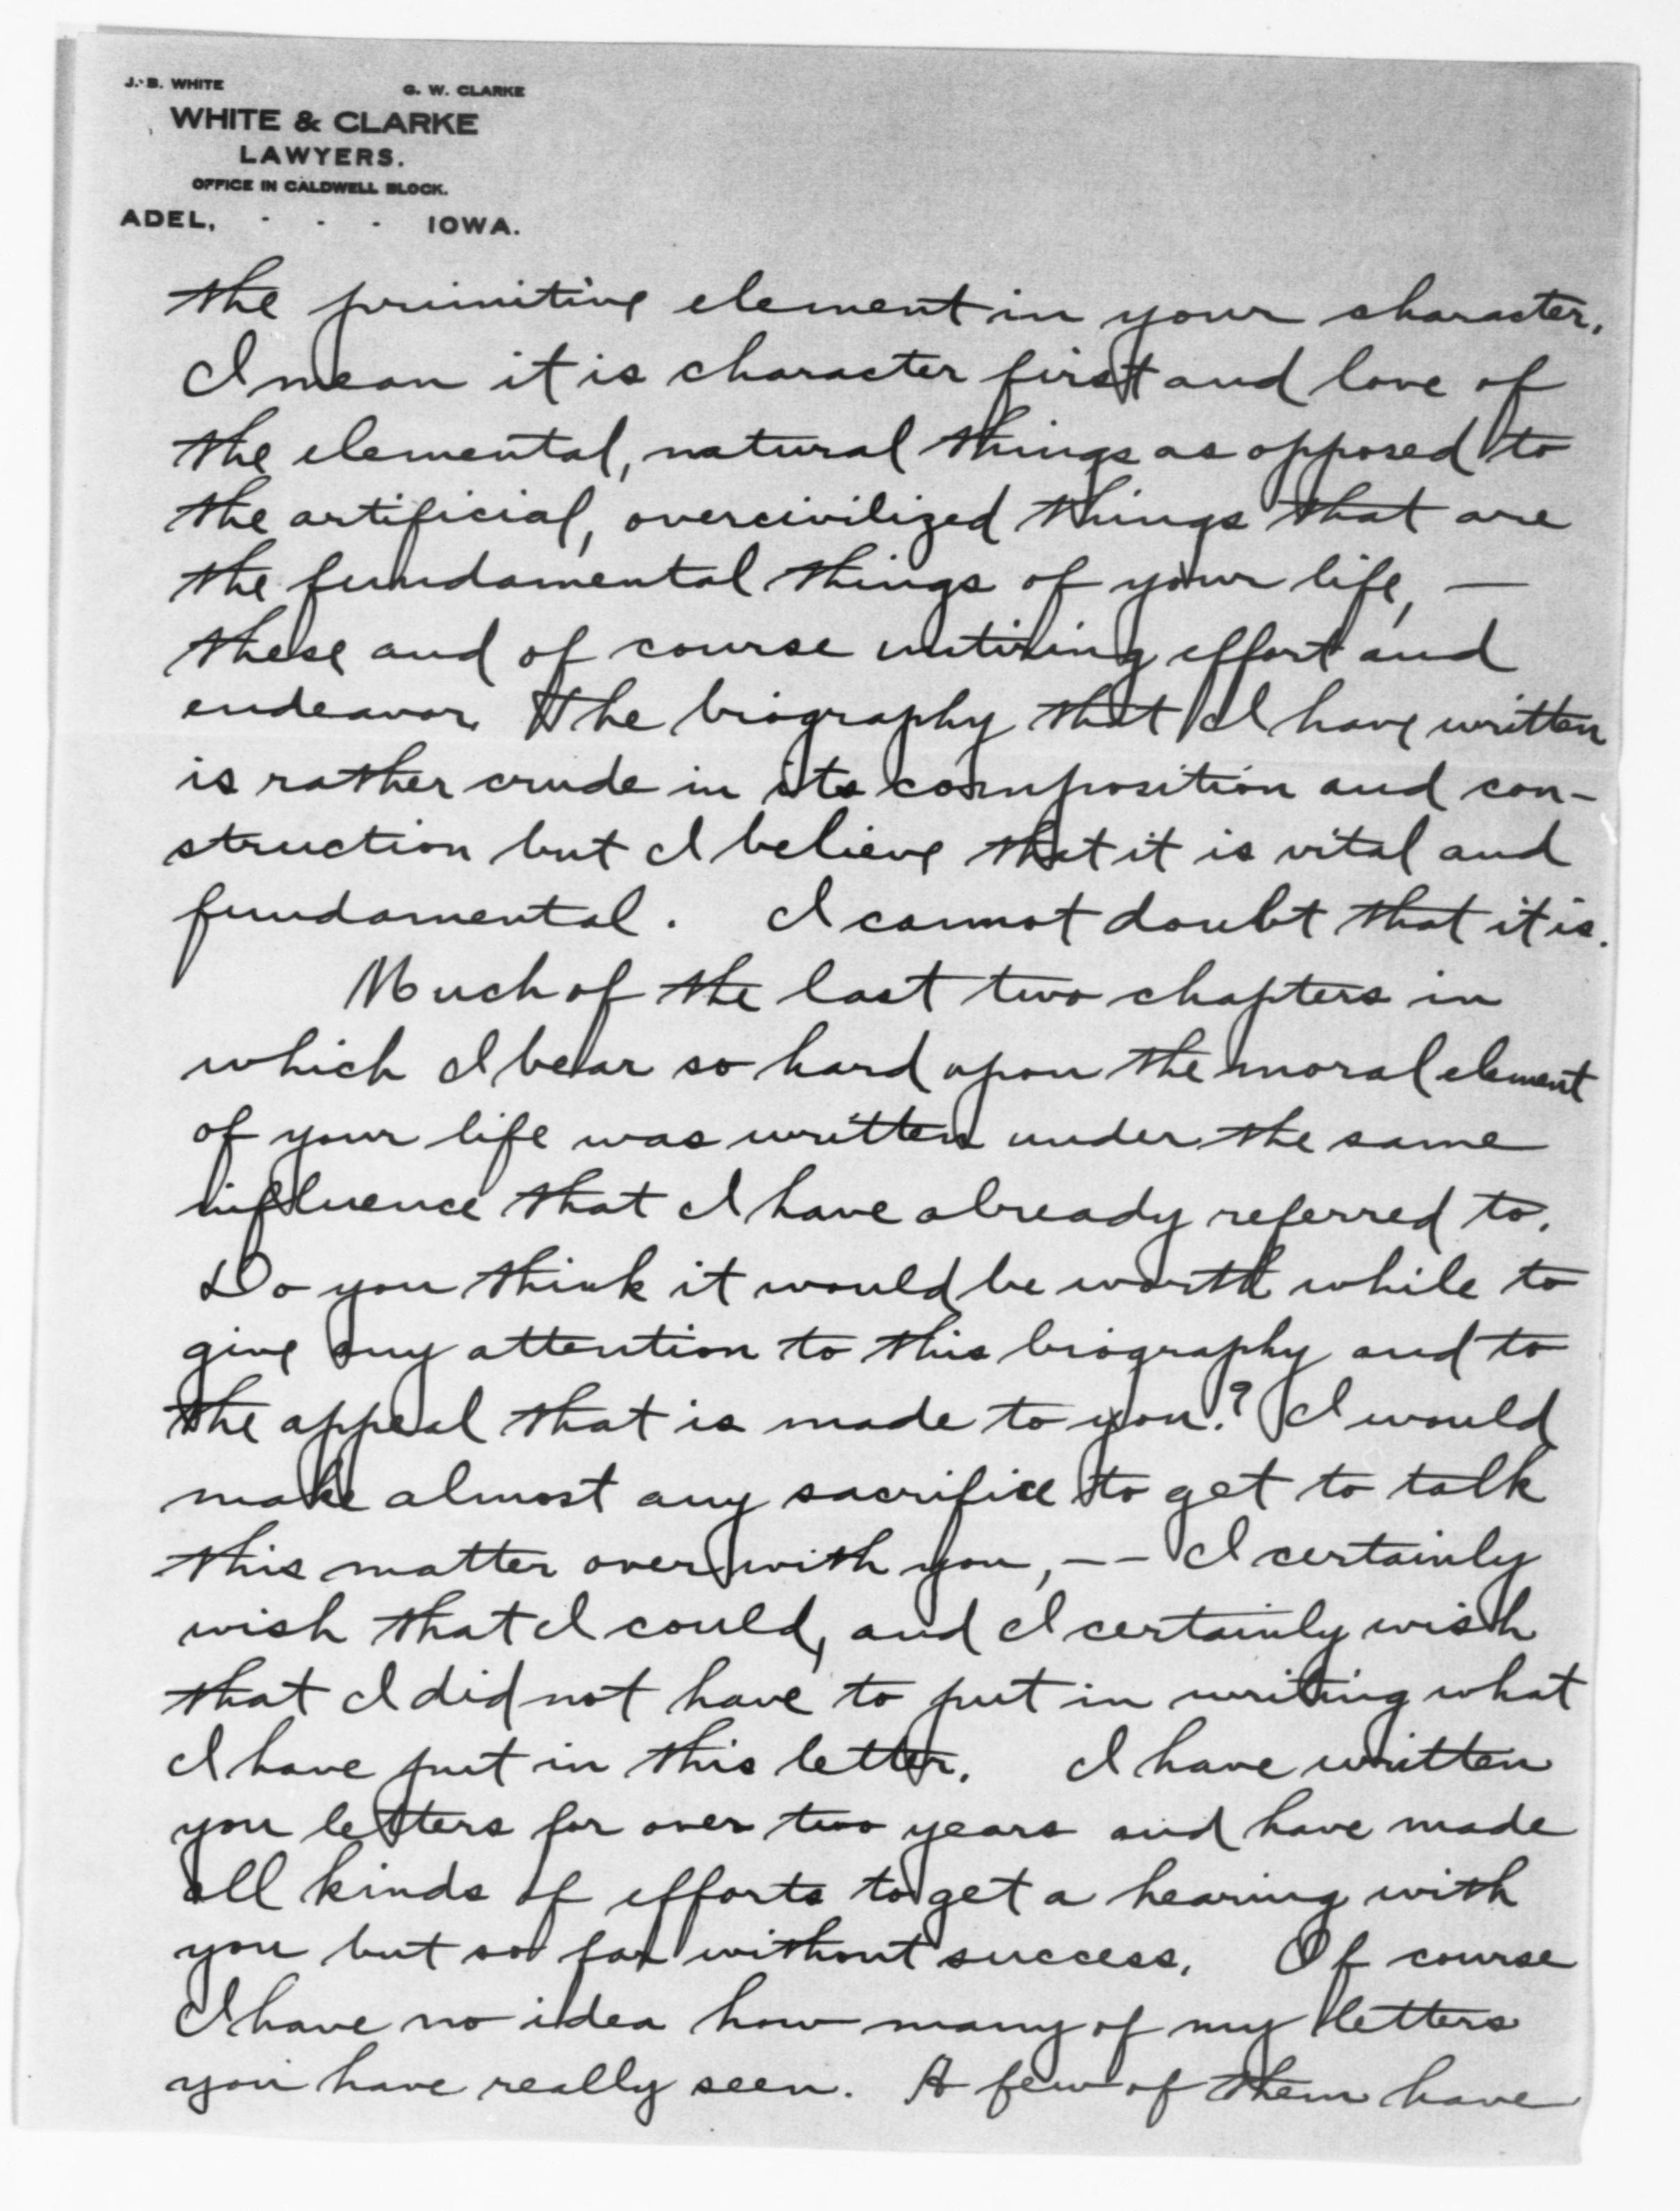 J. B. WHITE G. W. CLARKE
WHITE & CLARKE
LAWYERS.
OFFICE IN CALDWELL BLOCK.
ADEL, - - - IOWA.
the primitive element in your character.
I mean it is character first and love of
the elemental, natural things as opposed to
the artificial, overcivilized things that are
the fundamental things of your life, —
these and of course untiring effort and
endeavor. The biography that I have written
is rather crude in its composition and con-
struction but I believe that it is vital and
fundamental. I cannot doubt that it is.
Much of the last two chapters in
which I bear so hard upon the moral element
of your life was written under the same
influence that I have already referred to.
Do you think it would be worth while to
give any attention to this biography and to
the appeal that is made to you? I would
make almost any sacrifice to get to talk
this matter over with you, -- I certainly
wish that I could, and I certainly wish
that I did not have to put in writing what
I have put in this letter. I have written
you letters for over two years and have made
all kinds of efforts to get a hearing with
you but so far without success. Of course
I have no idea how many of my letters
you have really seen. A few of them have